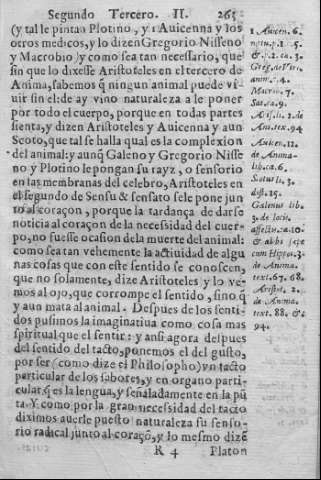 Segundo Tercero. II. 265
(y tal le pintan Plotino, y ꝛ Auicenna y los
otros medicos, y lo dizen Gregorio Nisseno
y Macrobio) y como sea tan necessario, que
sin que lo dixesse Aristoteles en el tercero de
Anima, sabemos q̃ ningun animal puede vi
uir sin el: de ay vino naturaleza a le poner
por todo el cuerpo, porque en todas partes
sienta, y dizen Aristoteles y Auicenna y aun
Scoto, que tal se halla qual es la complexion
del animal: y aunq̃ Galeno y Gregorio Nisse
no y Plotino le pongan su rayz, o sensorio
en las membranas del celebro, Aristoteles en
el segundo de Sensu & sensato se le pone jun
to al coraçon, porque la tardança de darse
noticia al coraçon de la necessidad del cuer-
po, no fuesse ocasion de la muerte del animal:
como sea tan vehemente la actiuidad de algu
nas cosas que con este sentido se conoscen,
que no solamente, dize Aristoteles y lo ve-
mos al ojo, que corrompe el sentido, sino q̃
y aun mata al animal. Despues de los senti-
dos pusimos la imaginatiua como cosa mas
spiritual que el sentir: y ansi agora despues
del sentido del tacto, ponemos el del gusto,
por ser (como dize el Philosopho) vn tacto
particular de los sabores, y en organo parti-
cular q̃ es la lengua, y señaladamente en la pũ
ta. Y como por la gran necessidad del tacto
diximos auerle puesto naturaleza su senso-
rio radical junto al coraçõ, y lo mesmo dizẽ
R 4 Platon
1 Auicen. 6.
natu. p. 1. 5.
& p. 2. ca. 3.
Greg. de Viri.
anim. c. 4.
Macro. 7.
Sat. ca. 9.
Aris. li. 2. de
Ani. tex. 94
Auicen. 12.
de Anima-
lib. ca. 6.
Scotus li. 3.
dist. 15.
Galenus lib.
3. de locis
affectis. ca. 10.
& alibi sepe
cum Hippoc. 3.
de Anima.
text. 67. 68.
Aristot. 2.
de Anima.
text. 88. &
94.